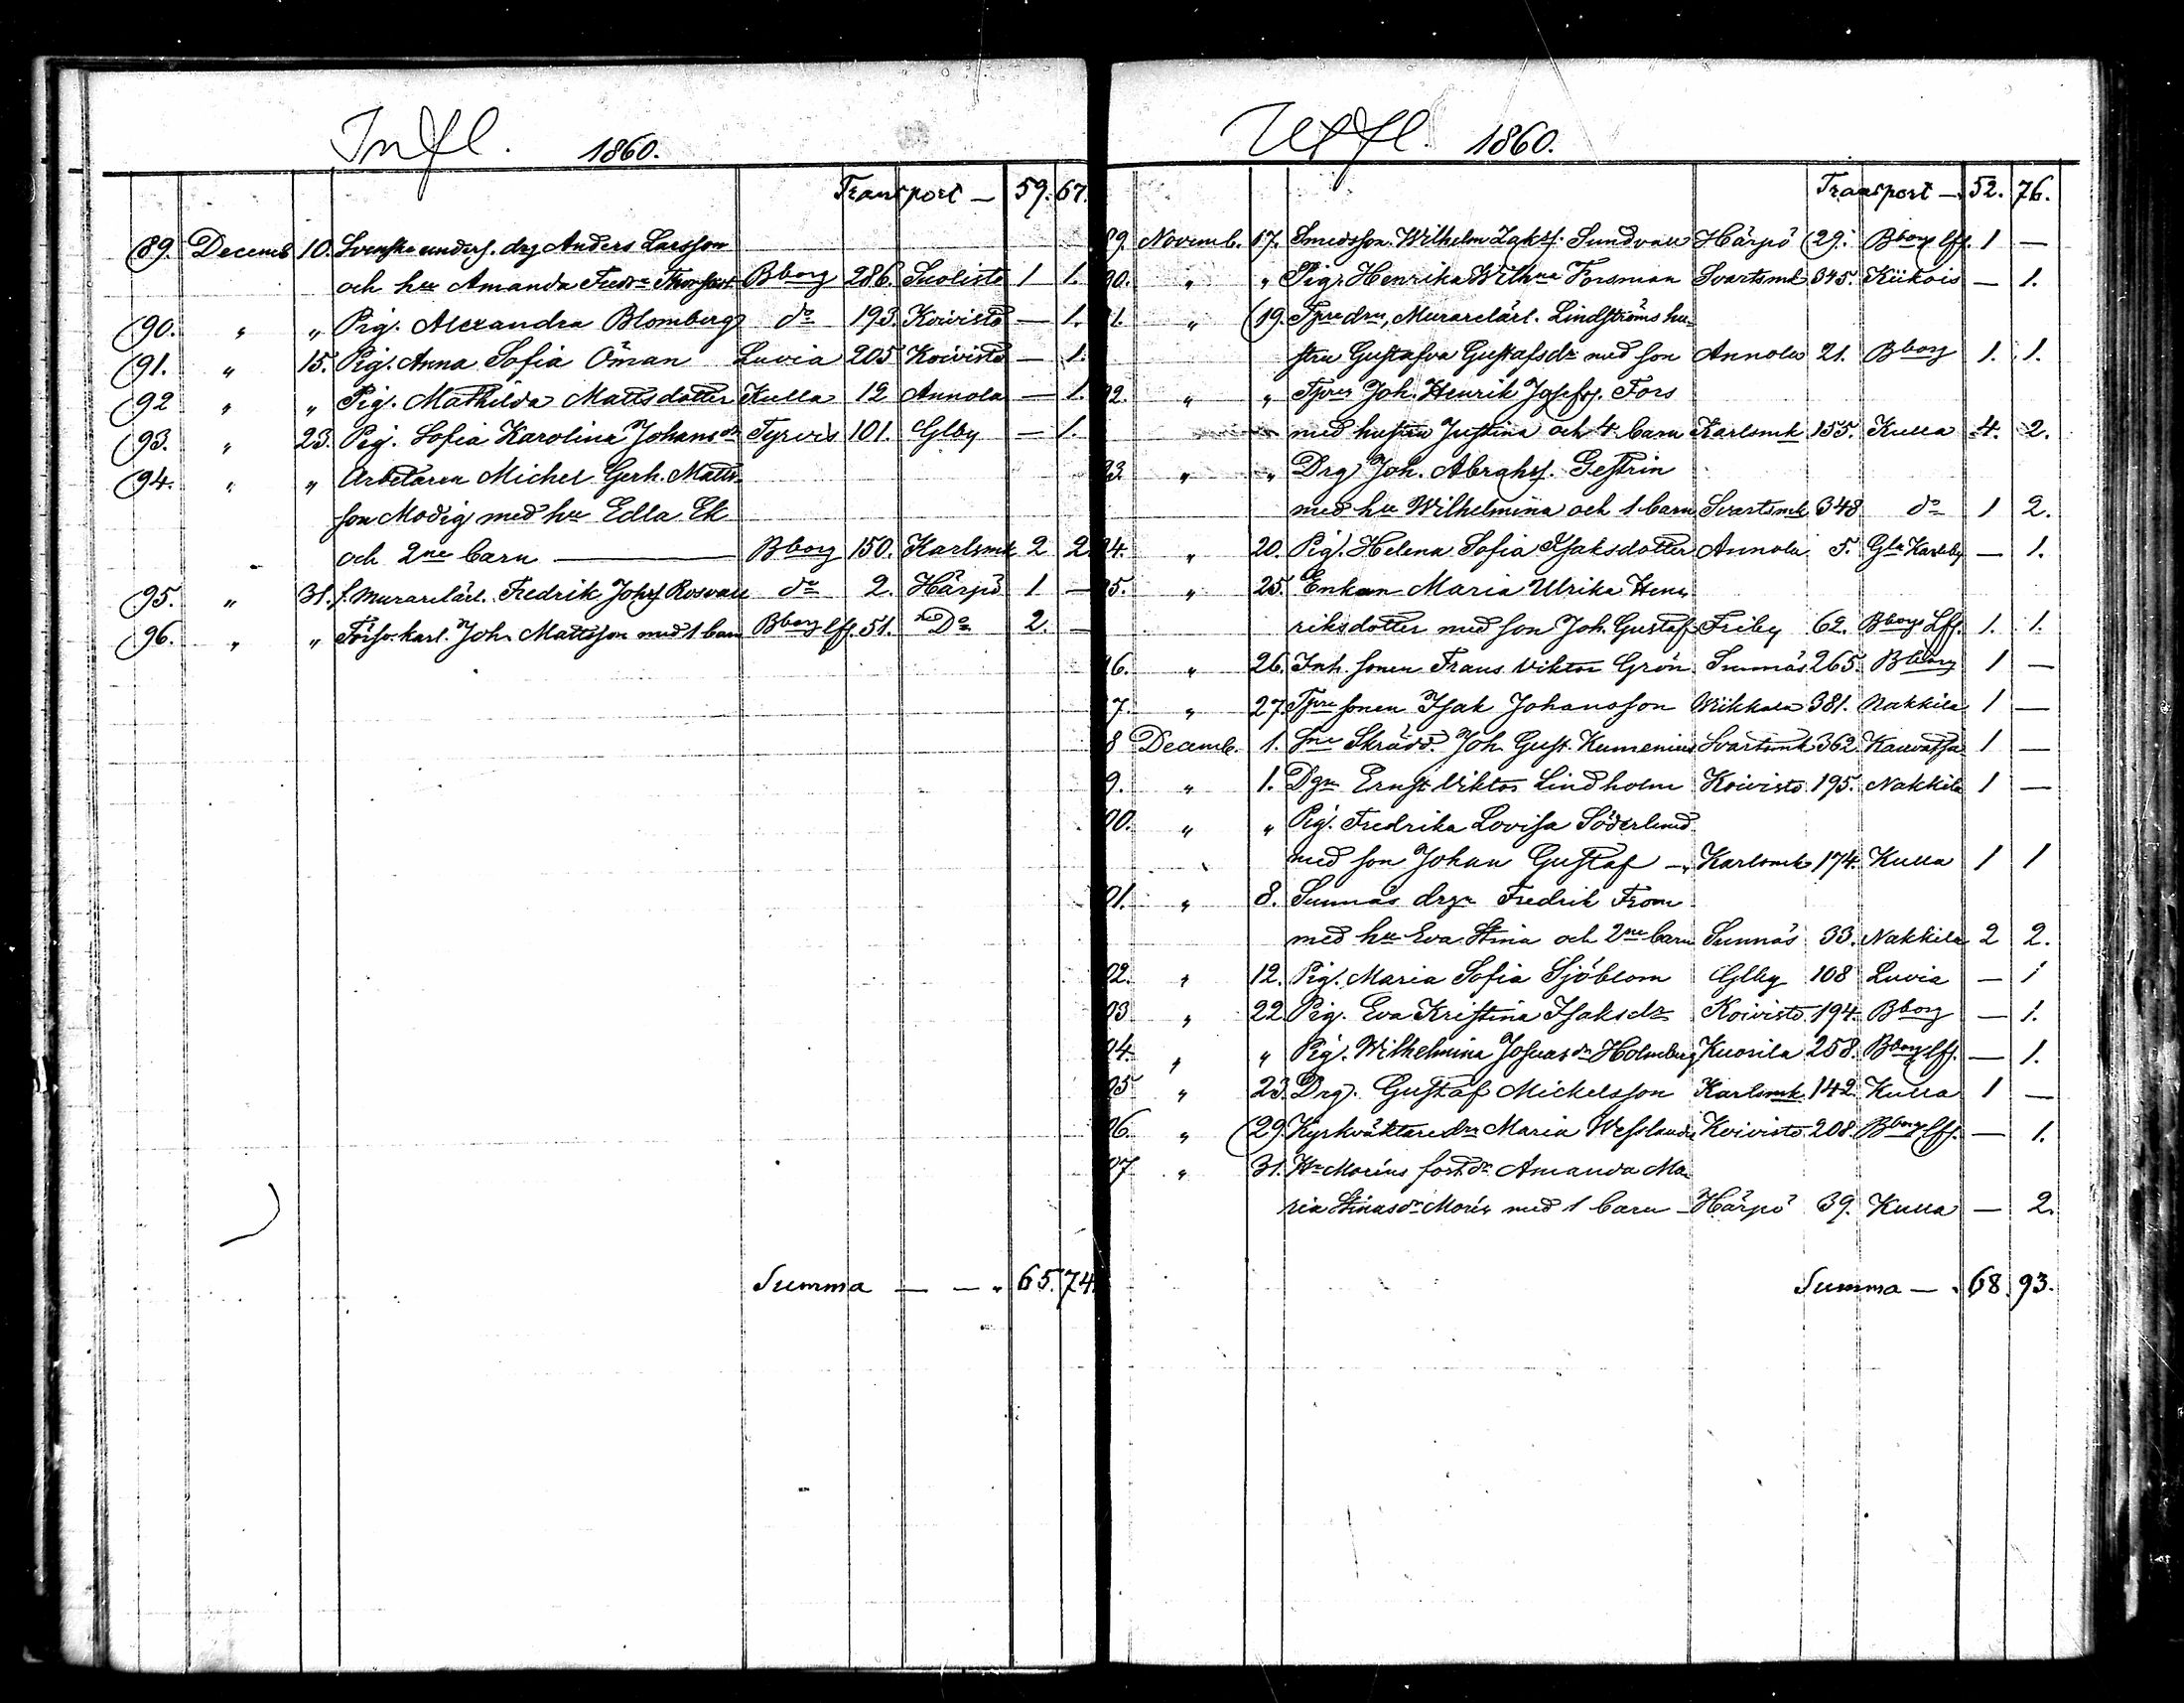 Infl. 1860.
Transport — 59. 67.
89. Decemb 10. Svenske unders. drg Anders Larsson
och hu Amanda Bborg 286. Suolisto 1 1.
90. " " Pig. Alexandra Blomberg do 193. Koivisto — 1.
91. " 15. Pig. Anna Sofia Öman Luvia 205 Koivisto — 1.
92 " " Pig. Mathilda Mattsdotter Kulla 12 Annola — 1.
93. " 23. Pig. Sofia Karolina Johansdr Tyrvis 101. Glby — 1.
94. " " Arbetaren Michel Gerh. Matts
son Modig med hu Edla Ek
och 2ne barn — Bborg 150. Karlsmk 2 2.
95. " 31. f. Murarelärl. Fredrik Johss Rosvall do 2. Härpö 1 —
96. " " Försv. karl. Joh. Mattsson med 1 barn Bborg lff. 51. Do 2. —
Summa — — " 65. 74.
Utfl. 1860.
Transport — 52. 76.
89. Novemb. 17. Smedsson. Wilhelm Sundvall Härpö 29. Bborg lff. 1 —
90. " " Pig. Henrika Wilhna Forsman Svartsmk 345. Kiikois — 1.
1. " 19. Murarelärl. Lindströms hu-
stru Gustafva Gustafsdr med son Annola 21. Bborg 1. 1.
92. " " Joh. Henrik Josefss. Fors
med hustru Justina och 4 barn Karlsmk 155. Kulla 4. 2.
93. " " Drg Joh. Abrahss. Gestrin
med hu Wilhelmina och 1 barn Svartsmk 348 do 1 2.
94. " 20. Pig. Helena Sofia Isaksdotter Annola 5. Gla Karleby — 1.
5. " 25. Enkan Maria Ulrika Hen
riksdotter med son Joh. Gustaf Friby 62. Bborgs Lff. 1. 1.
6. " 26. Inh. sonen Frans Viktor Grön Sunnäs 265. Bborg 1 —
7. " 27. sonen Isak Johansson Wiikkala 381. Nakkila 1 —
8 Decemb. 1. Skrädd. Joh. Gust. Kumenius Svartsmk 362 Kauvatsa 1 —
9. " 1. Dgn Ernst Viktor Lindholm Koivisto 195. Nakkila 1 —
00. " " Pig. Fredrika Lovisa Söderlund
med son Johan Gustaf — Karlsmk 174. Kulla 1 1
01. " 8. Sunnäs drgn Fredrik From
med hu Eva Stina och 2ne barn Sunnäs 33. Nakkila 2 2.
02. " 12. Pig. Maria Sofia Sjöblom Glby 108 Luvia — 1
03 " 22. Pig. Eva Kristina Isaksdr Koivisto 194. Bborg — 1.
04. " " Pig. Wilhelmina Josuasdr Holmberg Kuosila 258. Bborg lff. — 1.
05 " 23. Drg. Gustaf Mickelsson Karlsmk 142. Kulla 1 —
06. " 29. Kyrkväktaredr Maria Koivisto 208. Bborg lff. — 1.
07 " 31. Moréns fostdr Amanda Ma-
ria Stinasdr Morén med 1 barn — Härpö 39. Kulla — 2.
Summa — . 68. 93.